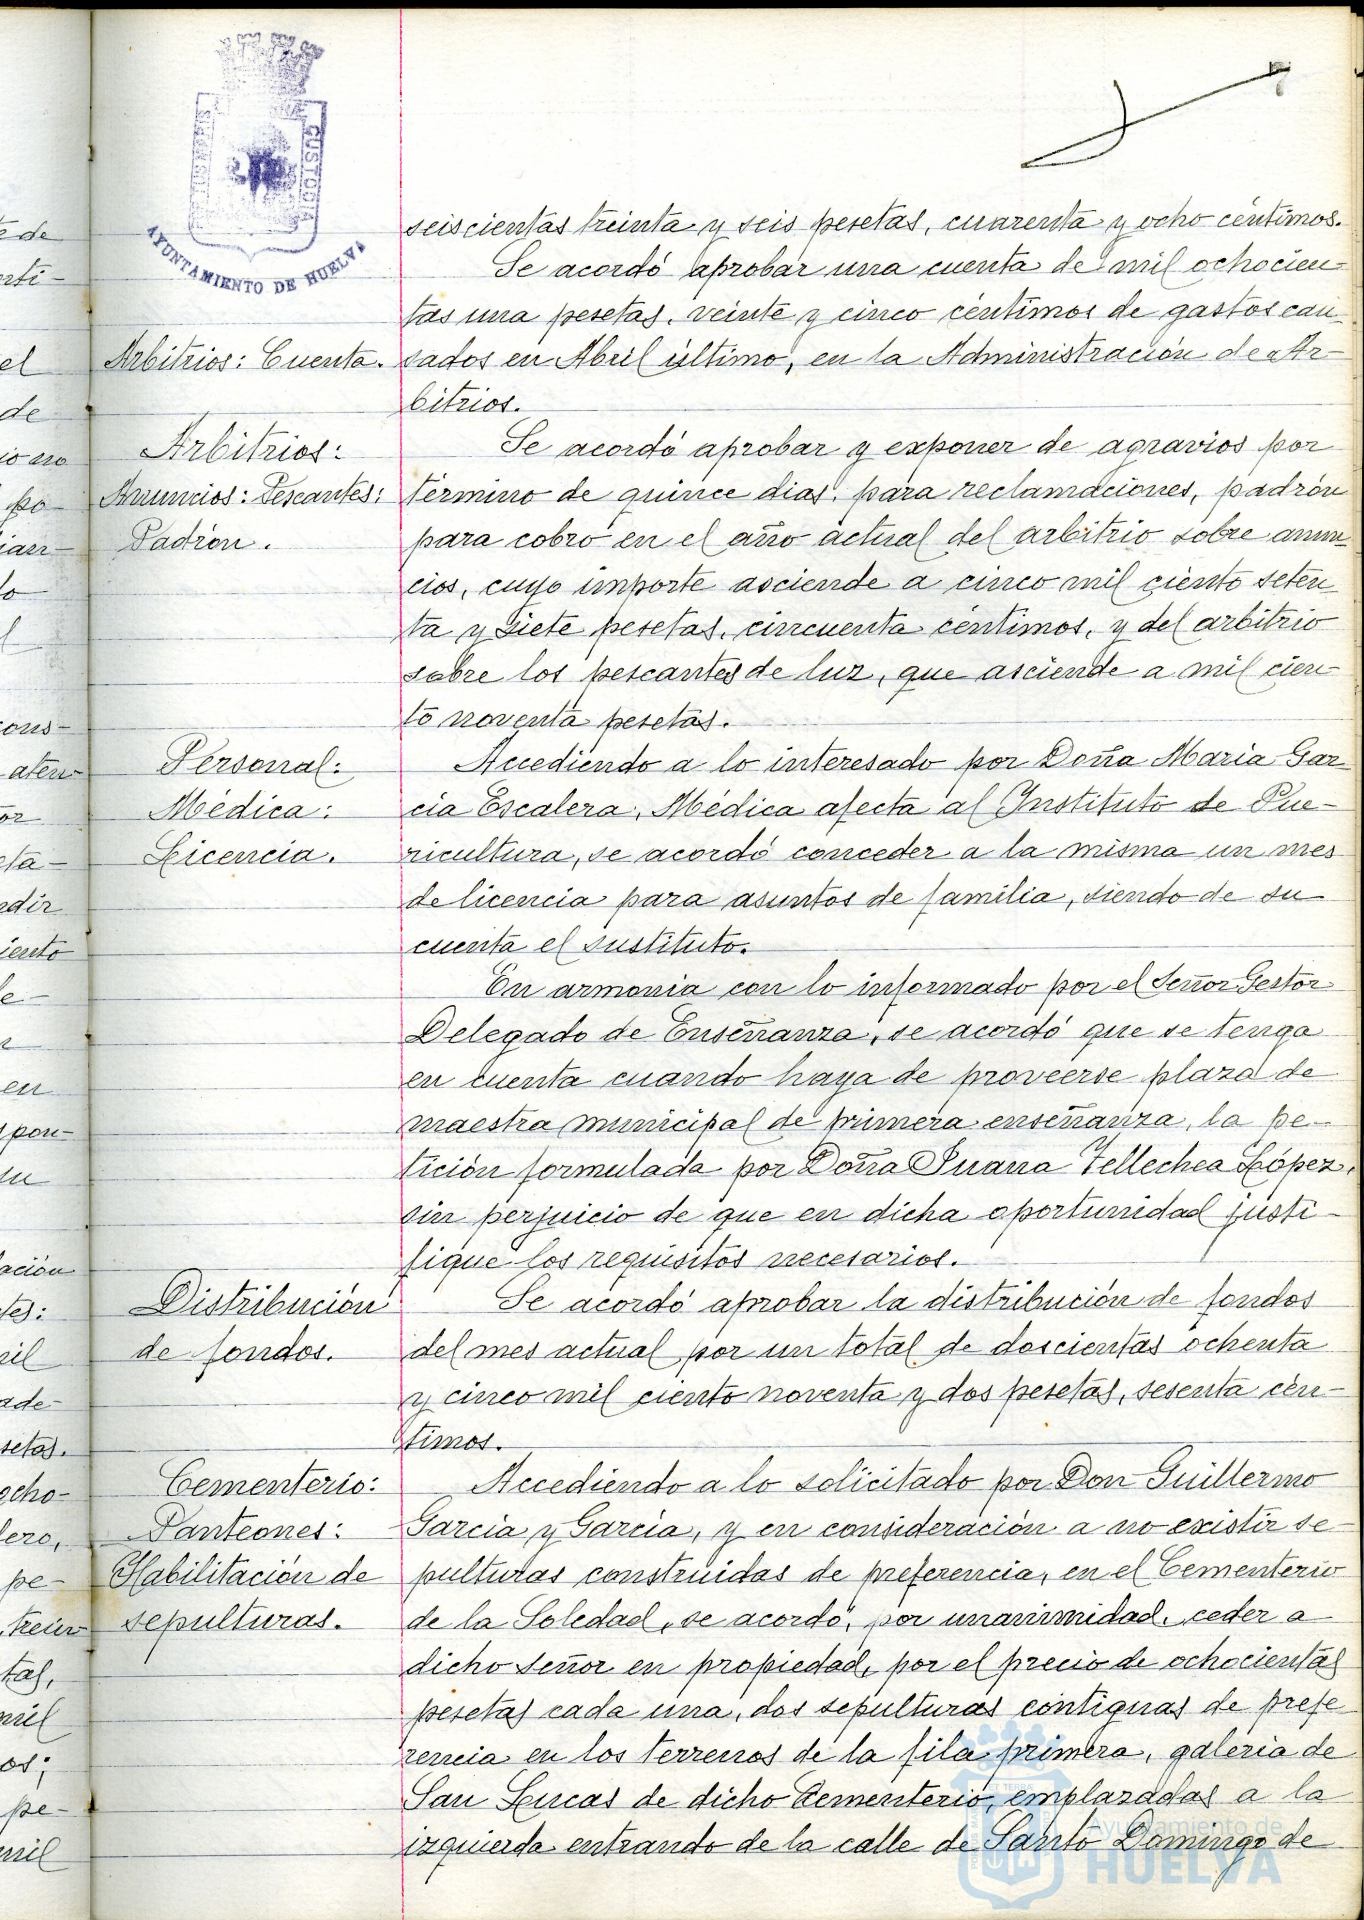 7
CUSTODIA
AYUNTAMIENTO DE HUELVA
seiscientas treinta y seis pesetas, cuarenta y ocho céntimos.
Se acordó aprobar una cuenta de mil ochocien-
tas una pesetas, veinte y cinco céntimos de gastos cau-
Arbitrios: Cuenta. sados en Abril último, en la Administración de Ar-
bitrios.
Arbitrios: Se acordó aprobar y exponer de agravios por
Anuncios: Pescantes: término de quince dias, para reclamaciones, padrón
Padrón. para cobro en el año actual del arbitrio sobre anun-
cios, cuyo importe asciende a cinco mil ciento seten-
ta y siete pesetas, cincuenta céntimos, y del arbitrio
sobre los pescantes de luz, que asciende a mil cien-
to noventa pesetas.
Personal: Accediendo a lo interesado por Doña Maria Gar-
Médica: cia Escalera, Médica afecta al Instituto de Pue-
Licencia. ricultura, se acordó conceder a la misma un mes
de licencia para asuntos de familia, siendo de su
cuenta el sustituto.
En armonia con lo informado por el Señor Gestor
Delegado de Enseñanza, se acordó que se tenga
en cuenta cuando haya de proveerse plaza de
maestra municipal de primera enseñanza, la pe-
tición formulada por Doña Juana Tellechea López,
sin perjuicio de que en dicha oportunidad justi-
fique los requisitos necesarios.
Distribución Se acordó aprobar la distribución de fondos
de fondos. del mes actual por un total de doscientas ochenta
y cinco mil ciento noventa y dos pesetas, sesenta cén-
timos.
Cementerio: Accediendo a lo solicitado por Don Guillermo
Panteones: Garcia y Garcia, y en consideración a no existir se-
Habilitación de pulturas construidas de preferencia, en el Cementerio
sepulturas. de la Soledad, se acordó, por unanimidad, ceder a
dicho señor en propiedad, por el precio de ochocientas
pesetas cada una, dos sepulturas contiguas de prefe
rencia en los terrenos de la fila primera, galeria de
San Lucas de dicho Cementerio, emplazadas a la
izquierda entrando de la calle de Santo Domingo de
Ayuntamiento de
HUELVA